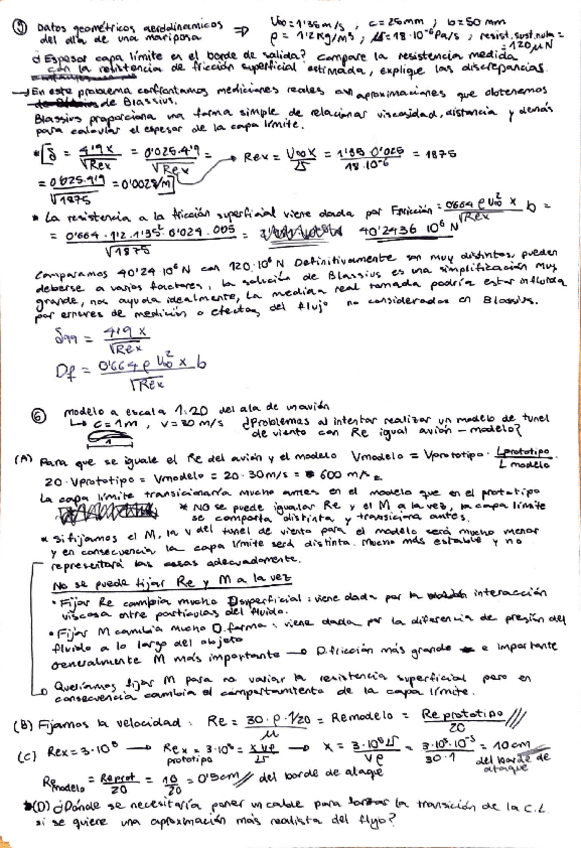 ⑤ Datos geométricos, aerodinámicos del ala de una mariposa ⇒ U∞ = 1'35 m/s, c = 25mm; b = 50 mm
ρ = 1'2 kg/m³, μ = 18·10⁻⁶ Pa/s; resist. sust. nula = 120 μN
¿Espesor capa límite en el borde de salida? Compare la resistencia medida
con la resistencia de fricción superficial estimada, explique las discrepancias.
→ En este problema confrontamos mediciones reales con aproximaciones que obtenemos
de Blassius.
Blassius proporciona una forma simple de relacionar viscosidad, distancia y demás
para calcular el espesor de la capa límite.
* δ = 4'9 x / √Rex = 0'025·4'9 / √Rex = → Rex = U∞ x / = 1'35·0'025 / 18·10⁻⁶ = 1875
= 0'025·4'9 / √1875 = 0'0028 m
* La resistencia a la fricción superficial viene dada por Ffricción = 0'664 ρ U∞² x / √Rex b =
= 0'664·1'2·1'35²·0'024·005 / √1875 = 40'2436 10⁶ N
Comparamos 40'24·10⁶ N con 120·10⁶ N. Definitivamente son muy distintos, pueden
deberse a varios factores, la solución de Blassius es una simplificación muy
grande, nos ayuda idealmente, La medida real tomada podría estar influida
por errores de medición o efectos del flujo no considerados en Blassius.
δ99 = 4'9 x / √Rex
Df = 0'664 ρ U∞² x b / √Rex
⑥ modelo a escala 1:20 del ala de un avión
↳ c = 1m, v = 30 m/s ¿Problemas al intentar realizar un modelo de tunel
de viento con Re igual avión - modelo?
(A) Para que se iguale el Re del avión y el modelo Vmodelo = Vprototipo · Lprototipo / L modelo
20 · Vprototipo = Vmodelo = 20 · 30 m/s = 600 m/s
La capa límite transicionaría mucho antes en el modelo que en el prototipo
* No se puede igualar Re y el M a la vez, la capa límite
se comporta distinta y transiciona antes.
* Si fijamos el M, la v del tunel de viento para el modelo será mucho menor
y en consecuencia la capa límite será distinta. Mucho más estable y no
representará las cosas adecuadamente.
No se puede fijar Re y M a la vez
· Fijar Re cambia mucho D superficial: viene dada por la interacción
viscosa entre partículas del fluido.
· Fijar M cambia mucho D. forma: viene dada por la diferencia de presión del
fluido a lo largo del objeto
Generalmente M más importante → D. fricción más grande e importante
→ Queríamos fijar M para no variar la resistencia superficial pero en
consecuencia cambia el comportamiento de la capa límite.
(B) Fijamos la velocidad: Re = 30 · ρ · 1/20 / μ = Remodelo = Re prototipo / 20
(C) Rex = 3·10⁵ → Rex prototipo = 3·10⁵ = → x = = 3·10⁵·10⁻⁵ / 30·1 = 10 cm del borde de ataque
Remodelo = Reprot / 20 = 10 / 20 = 0'5cm del borde de ataque
*(D) ¿Dónde se necesitaría poner un cable para forzar la transición de la C.L.
si se quiere una aproximación más realista del flujo?